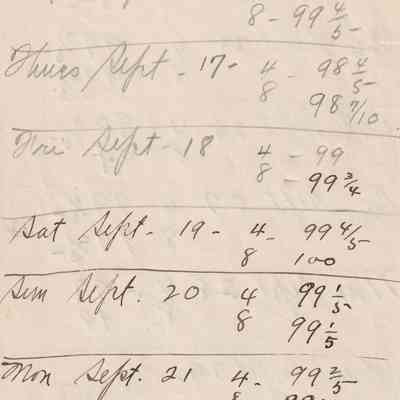 8 - 99 4/5
Thurs Sept - 17 - 4 - 98 4/5
8 98 7/10
Fri Sept - 18 4 - 99
8 - 99 3/4
Sat Sept - 19 - 4 - 99 4/5
8 100
Sun Sept. 20 4 99 1/5
8 99 1/5
Mon Sept. 21 4 - 99 2/5